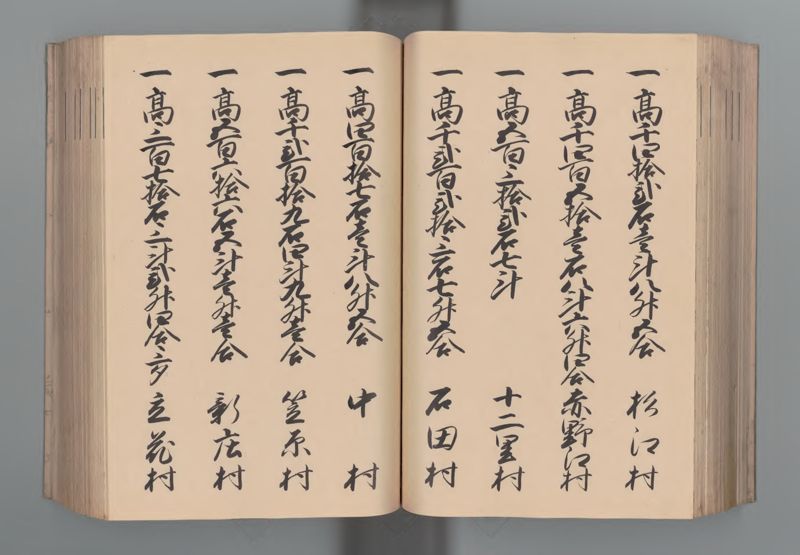 一高千四拾弐石壱斗八升五合 松江村
一高千四百五拾壱石八斗六升四合 赤野江村
一高五百三拾弐石七斗 十二里村
一高千弐百弐拾三石七升五合 石田村
一高四百拾七石壱斗八升五合 中村
一高千弐百拾九石四斗九升壱合 笠原村
一高五百六拾六石五斗壱升壱合 新庄村
一高三百七拾石三斗弐升四合三夕 立花村